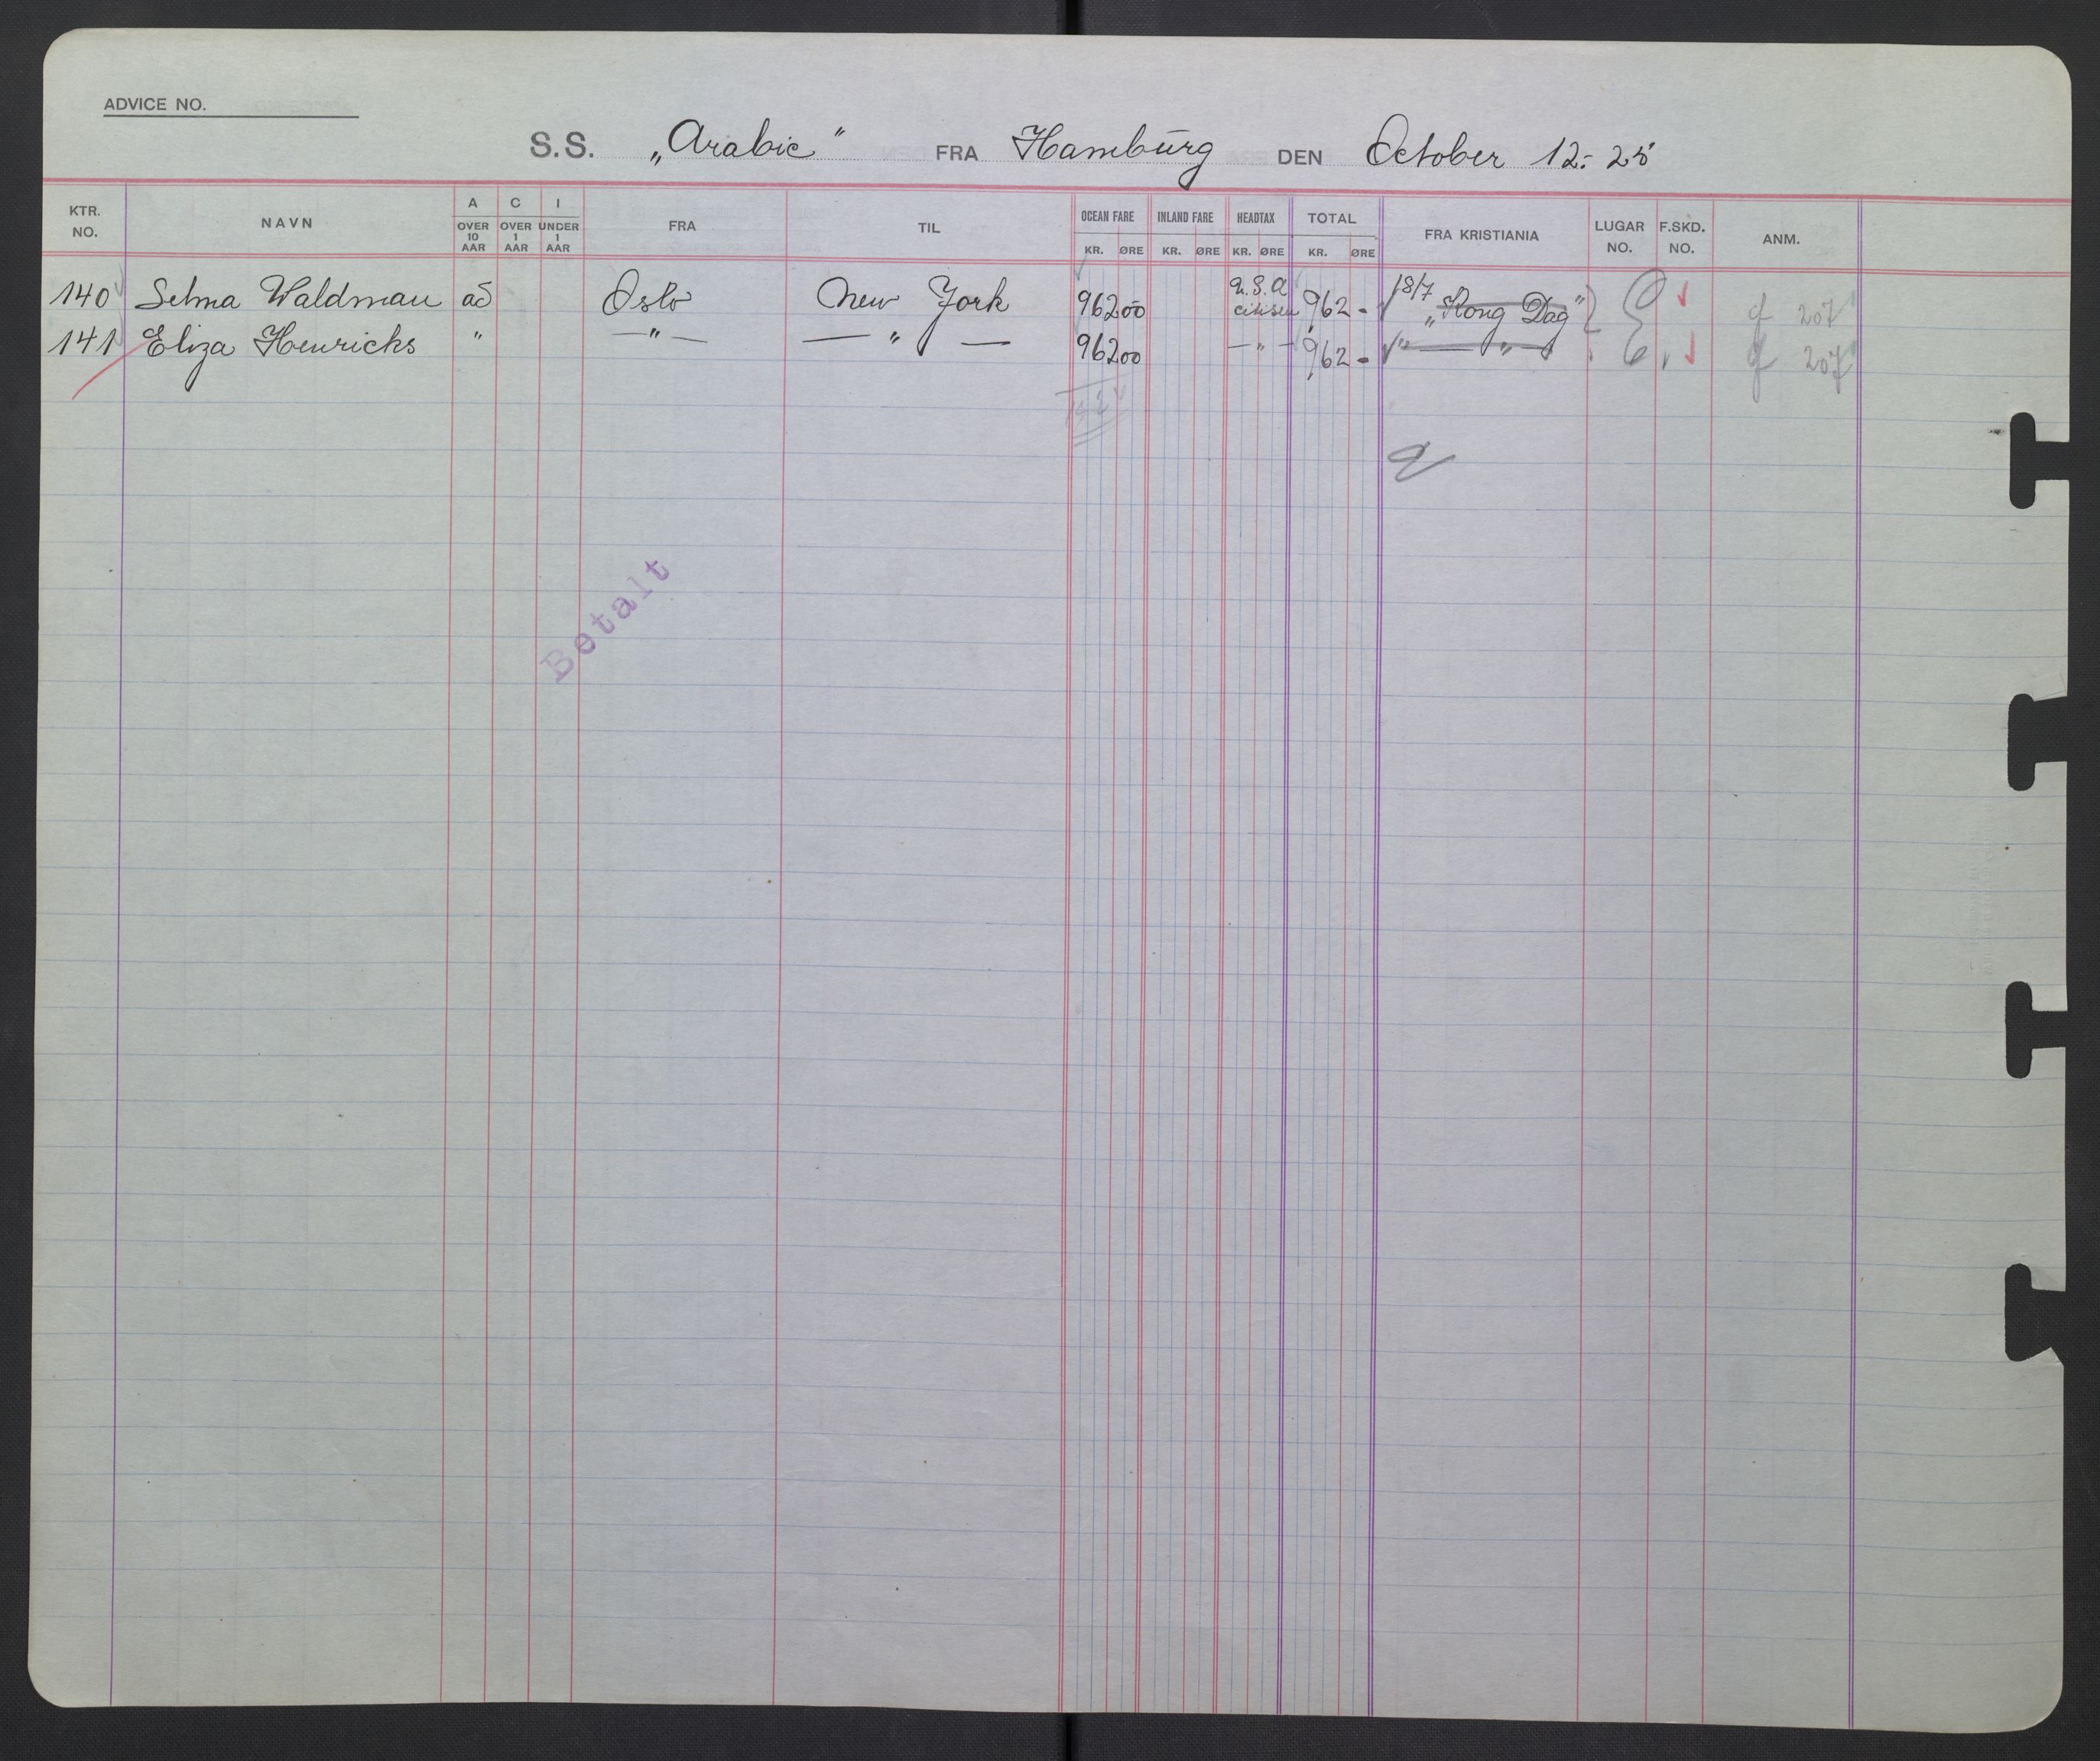 ADVICE NO.
S.S. „Arabic" FRA Hamburg DEN October 12.- 25
KTR. NO. NAVN A OVER 10 AAR C OVER 1 AAR I UNDER 1 AAR FRA TIL OCEAN FARE KR. ØRE INLAND FARE KR. ØRE HEADTAX KR. ØRE TOTAL KR. ØRE FRA KRISTIANIA LUGAR NO. F.SKD. NO. ANM.
140 Selma Waldman ad Oslo New York 962 00 U.S.A citisen 962 - 18/7 „Kong Dag" 207
141 Eliza Henricks " — " — — " — 962 00 — " — 962 - " — " — 207
1924
Betalt